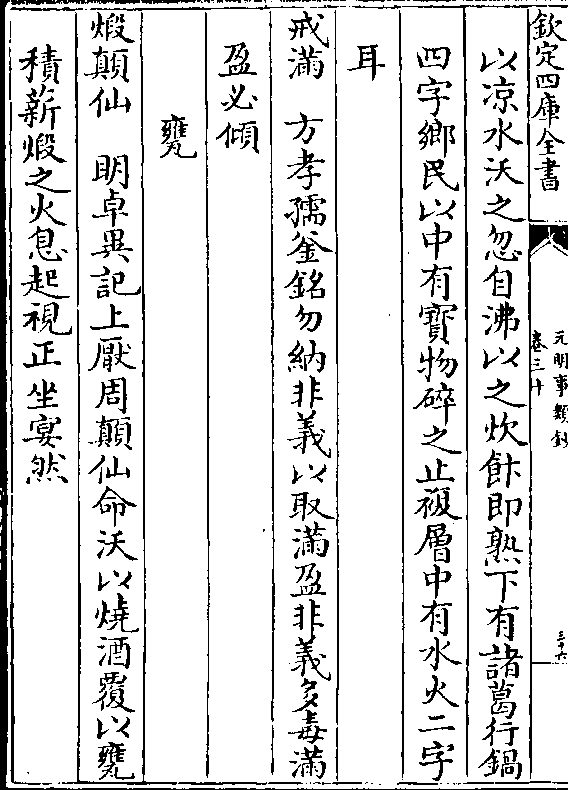 欽定四庫全書
元明事類鈔
卷三十
三十六
以凉水沃之忽自沸以之炊飰即熟下有諸葛行鍋
四字鄉民以中有寳物碎之止複層中有水火二字
耳
戒滿　方孝孺釜銘勿納非義以取滿盈非義多毒滿
盈必傾
甕
煅顛仙　明卓異記上厭周顛仙命沃以燒酒覆以甕
積薪煅之火息起視正坐宴然